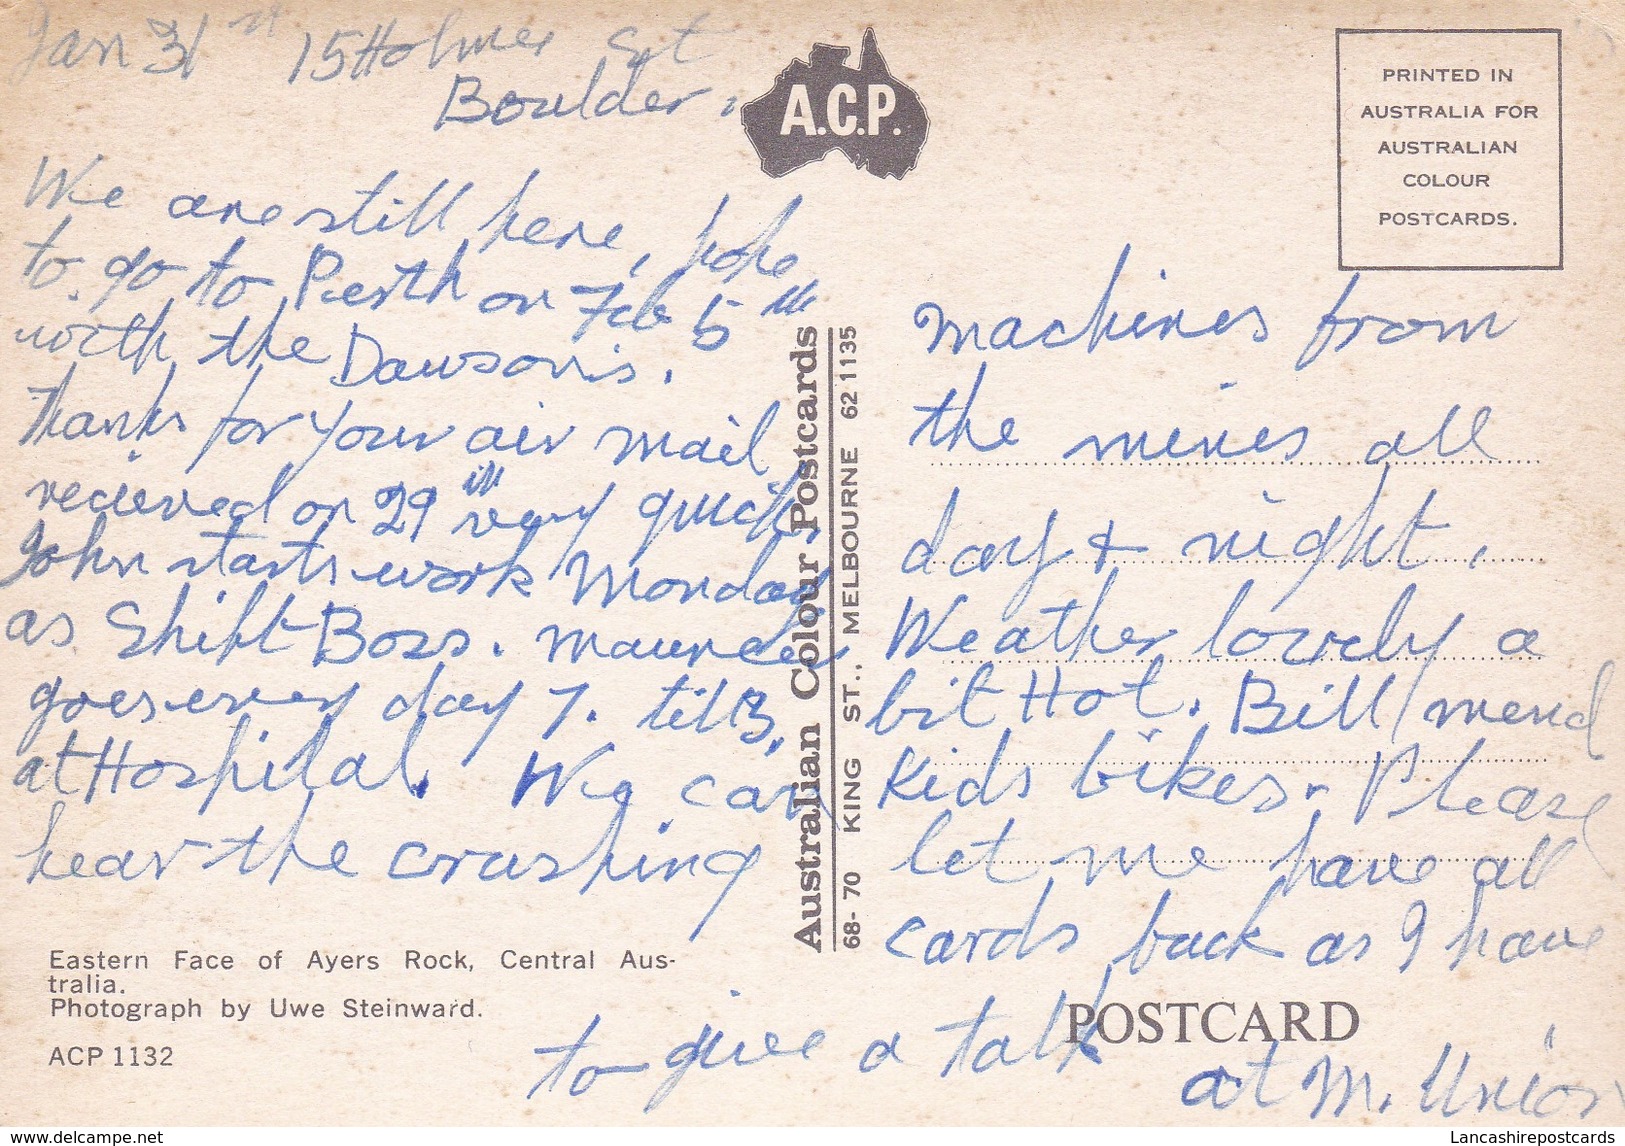 Jan 31st 15 Holmes St
Boulder.
We are still here, hope
to go to Perth on Feb 5th
with the Dawson's.
Thanks for your air mail
recieved on 29th very quick
John starts work Monday
as Shift Boss.
goes every day 7. till 3,
at Hospital. We can
hear the crushing
machines from
the mines all
day & night.
Weather lovely a
bit Hot. Bill mend
Kids bikes. Please
let me have all
cards back as I have
to give a talk
at M. Union
A.C.P.
PRINTED IN
AUSTRALIA FOR
AUSTRALIAN
COLOUR
POSTCARDS.
Australian Colour Postcards
68-70 KING ST., MELBOURNE 62 1135
Eastern Face of Ayers Rock, Central Aus-
tralia.
Photograph by Uwe Steinward.
ACP 1132
POSTCARD
Lancashirepostcards